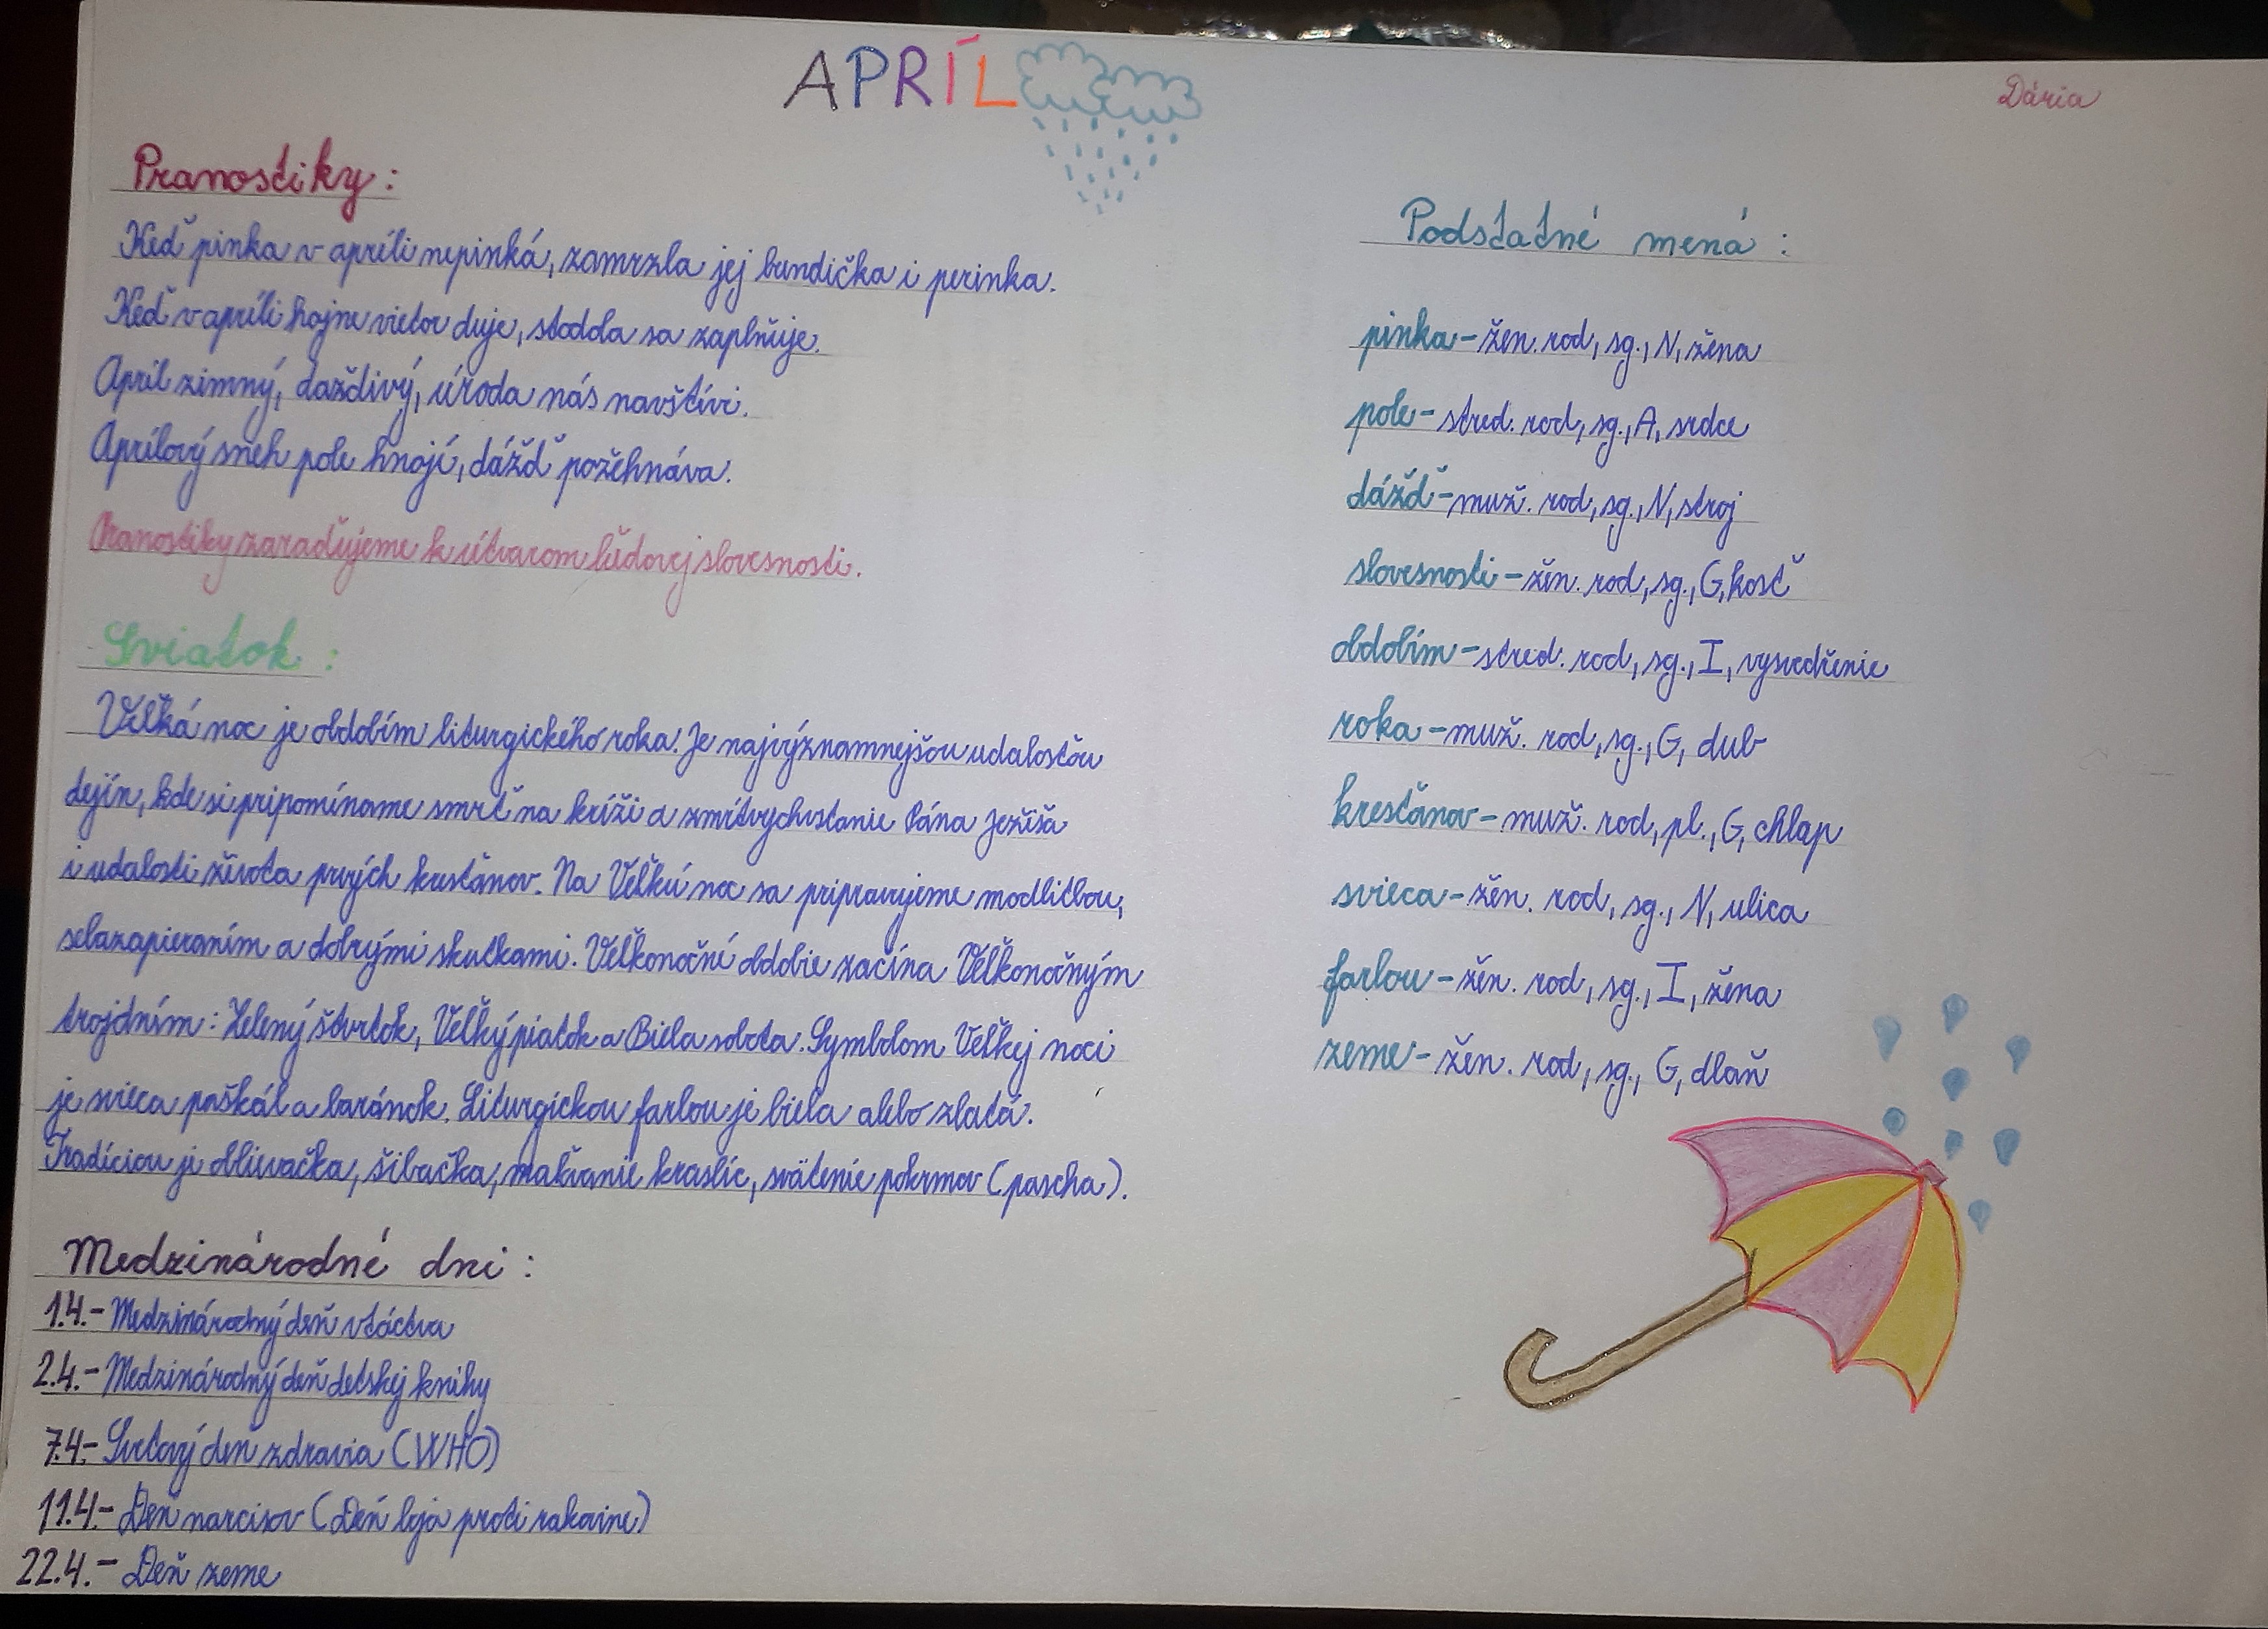 APRÍL
Dária
Pranostiky:
Keď pinka v apríli nepinká, zamrzla jej bundička i perinka.
Keď v apríli hojne vietor duje, stodola sa zaplňuje.
Apríl zimný, daždivý, úroda nás navštívi.
Aprílový sneh pole hnojí, dážď požehnáva.
Pranostiky zaraďujeme k útvarom ľudovej slovesnosti.
Sviatok:
Veľká noc je obdobím liturgického roka. Je najvýznamnejšou udalosťou
dejín, kde si pripomíname smrť na kríži a zmŕtvychvstanie Pána Ježiša
i udalosti života prvých kresťanov. Na Veľkú noc sa pripravujeme modlitbou,
sebazapieraním a dobrými skutkami. Veľkonočné obdobie začína Veľkonočným
trojdním: Zelený štvrtok, Veľký piatok a Biela sobota. Symbolom Veľkej noci
je svieca paškál a baránok. Liturgickou farbou je biela alebo zlatá.
Tradíciou je oblievačka, šibačka, maľovanie kraslíc, svätenie pokrmov (pascha).
Medzinárodné dni:
1.4.- Medzinárodný deň vtáctva
2.4.- Medzinárodný deň detskej knihy
7.4.- Svetový deň zdravia (WHO)
11.4.- Deň narcisov (Deň boja proti rakovine)
22.4.- Deň zeme
Podstatné mená:
pinka - žen. rod, sg., N, žena
pole - stred. rod, sg., A, srdce
dážď - muž. rod, sg., N, stroj
slovesnosti - žen. rod, sg., G, kosť
obdobím - stred. rod, sg., I, vysvedčenie
roka - muž. rod, sg., G, dub
kresťanov - muž. rod, pl., G, chlap
svieca - žen. rod, sg., N, ulica
farbou - žen. rod, sg., I, žena
zeme - žen. rod, sg., G, dlaň